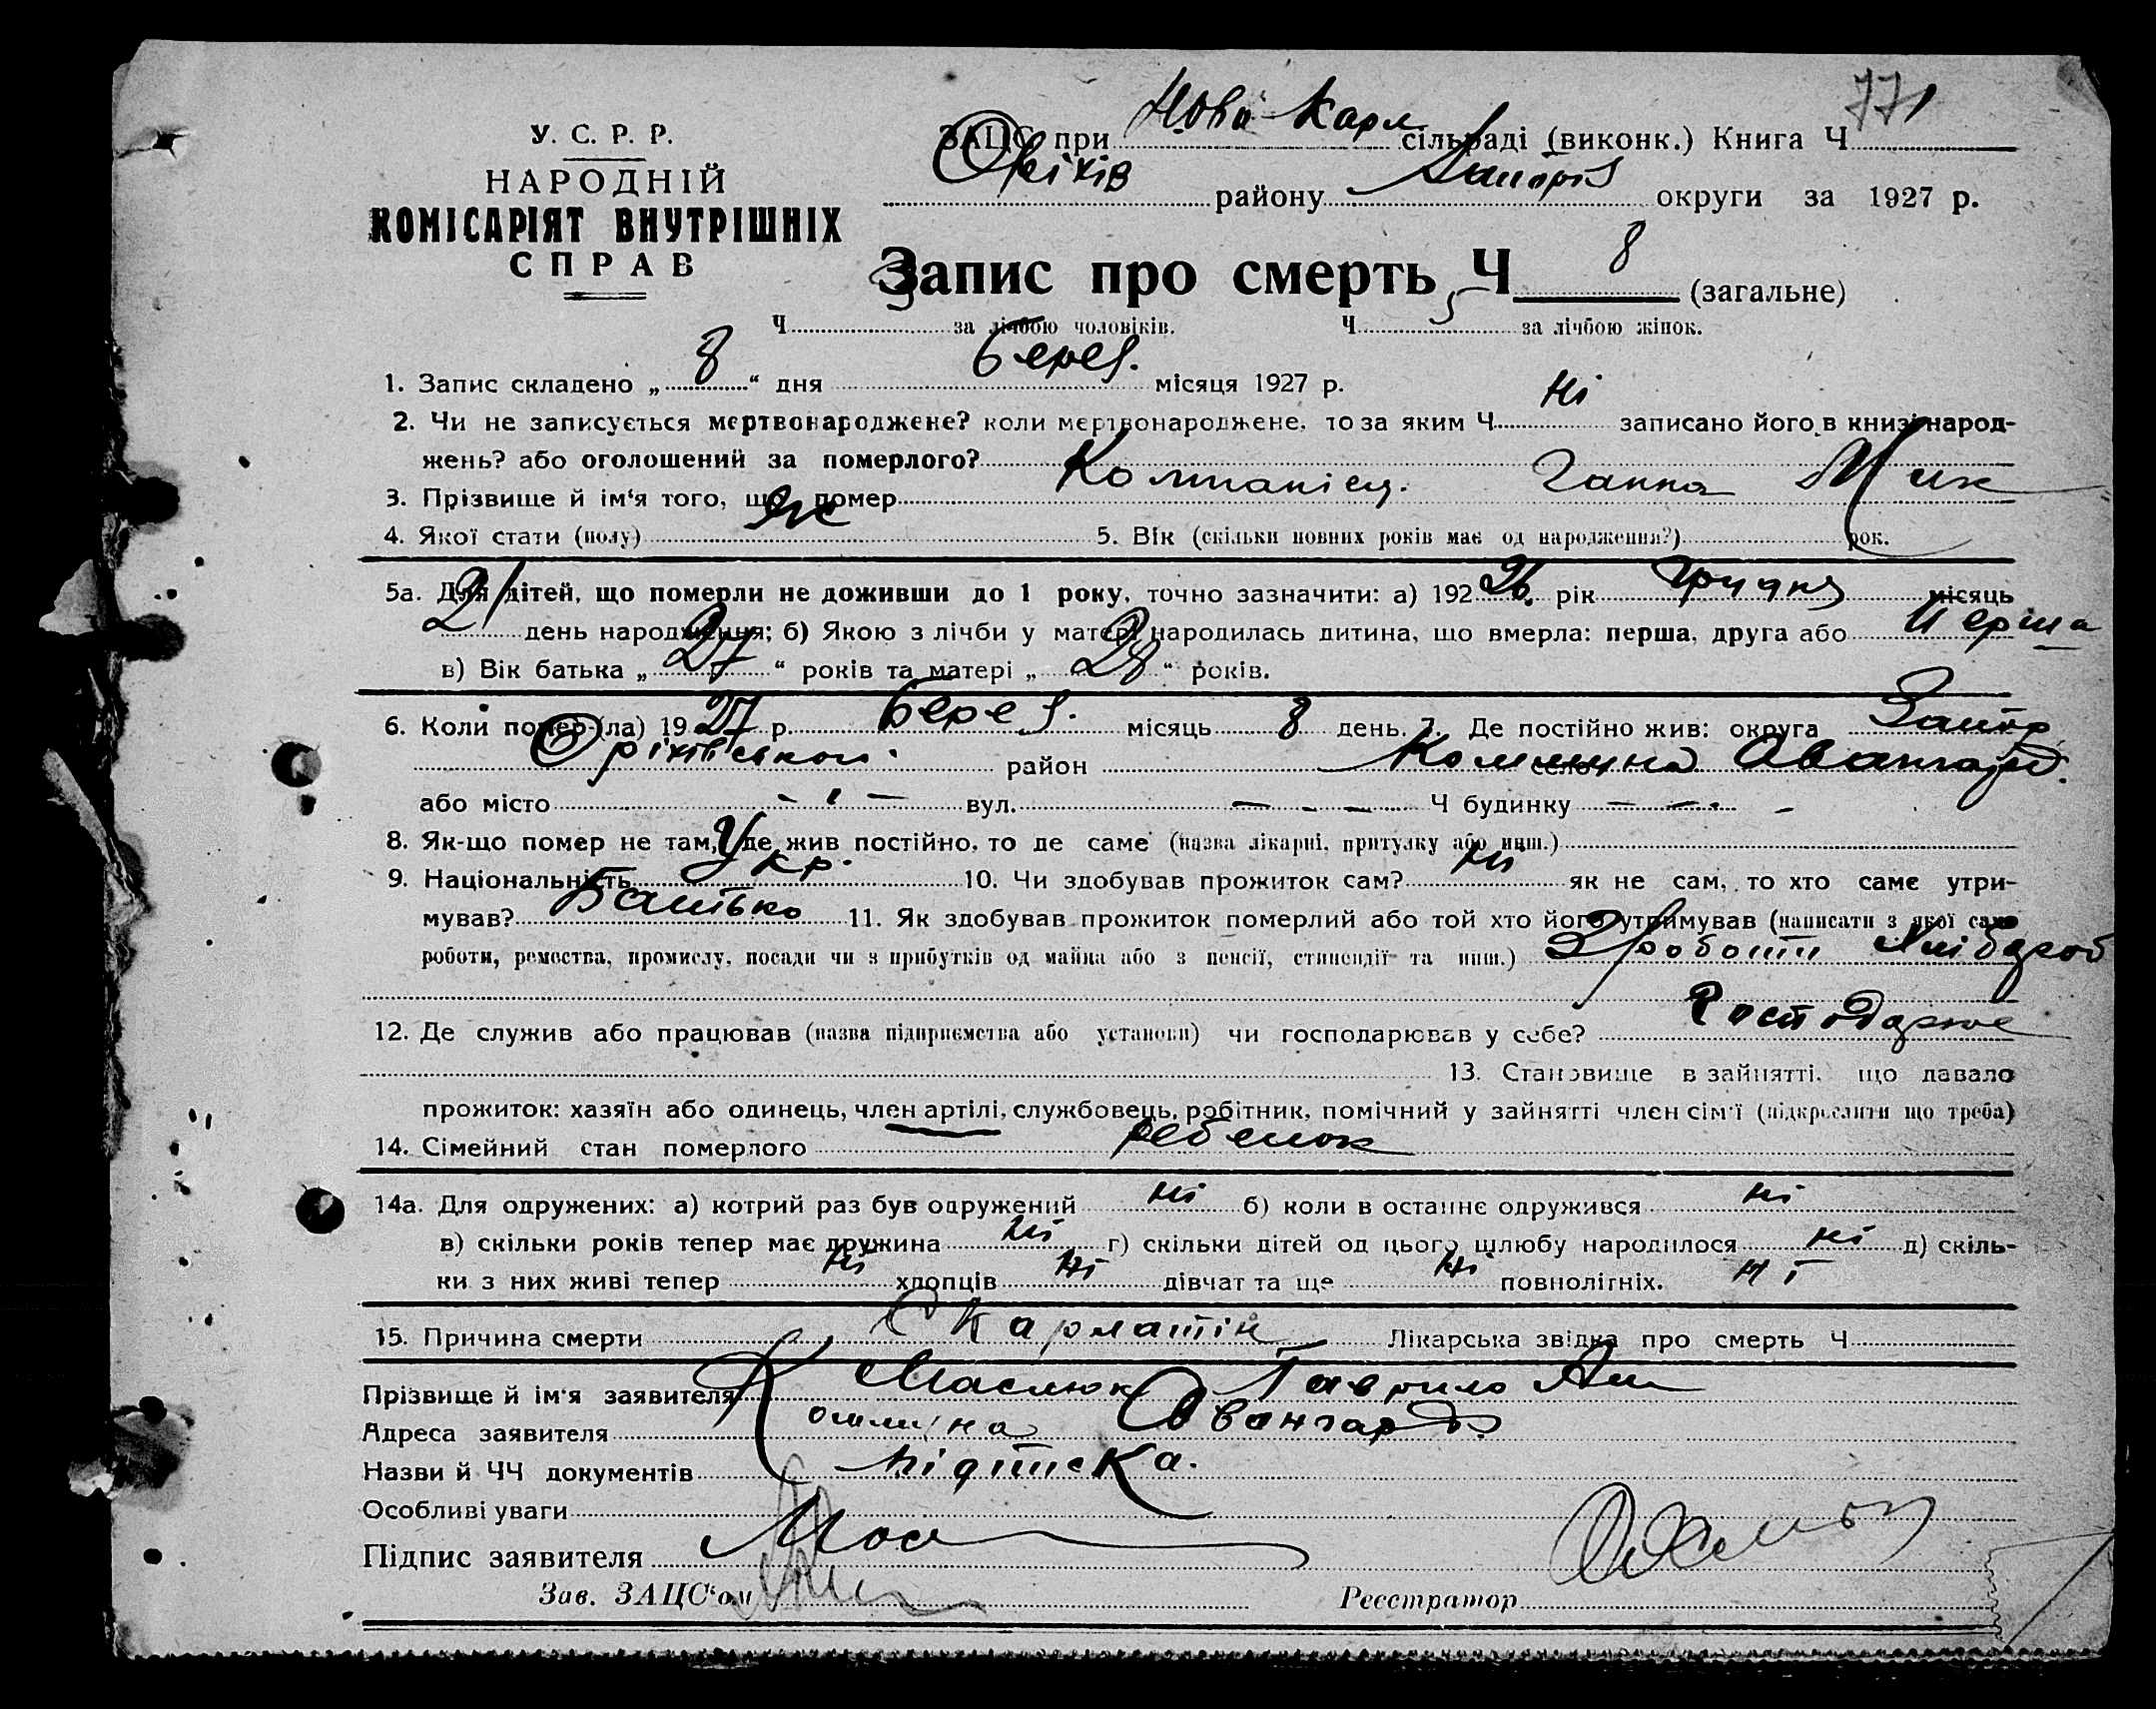 771
У. С. Р. Р.
НАРОДНІЙ
КОМІСАРІЯТ ВНУТРІШНІХ
СПРАВ
ЗАЦС при Ново-Карл сільраді (виконк.) Книга Ч
Оріхів району Запоріз округи за 1927 р.
Запис про смерть Ч 8 (загальне)
Ч за лічбою чоловіків. Ч 5 за лічбою жінок.
1. Запис складено „ 8 “ дня Берез. місяця 1927 р.
2. Чи не записується мертвонароджене? коли мертвонароджене, то за яким Ч Ні записано його в книзі народ-
жень? або оголошений за померлого?
3. Прізвище й ім‘я того, що помер Компаніец. Ганна Мик
4. Якої стати (полу) Ж 5. Вік (скільки повних років має од народження?) рок.
5а. Для дітей, що померли не доживши до 1 року, точно зазначити: а) 192 26 рік Грудня місяць
21 день народження; б) Якою з лічби у матері народилась дитина, що вмерла: перша, друга або Перша
в) Вік батька „ 27 “ років та матері „ 28 “ років.
6. Коли помер-(ла) 19 27 р. Берез. місяць 8 день. 7. Де постійно жив: округа Запор
Оріхівського район село Коммуна Авангард.
або місто - - - вул. - - - Ч будинку - - - -
8. Як-що помер не там, де жив постійно, то де саме (назва лікарні, притулку або инш.)
9. Національність Укр. 10. Чи здобував прожиток сам? Ні як не сам, то хто саме утри-
мував? Батько 11. Як здобував прожиток померлий або той хто його утримував (написати з якої само
роботи, ремества, промислу, посади чи з прибутків од майна або з пенсії, стипендії та инш.) З роботи хлібороб
12. Де служив або працював (назва підприємства або установи) чи господарював у себе? Господарює
13. Становище в зайнятті, що давало
прожиток: хазяїн або одинець, член артілі, службовець, робітник, помічний у зайнятті член сім‘ї (підкреслити що треба)
14. Сімейний стан померлого ребенок
14а. Для одружених: а) котрий раз був одружений ні б) коли в останнє одружився ні
в) скільки років тепер має дружина ні г) скільки дітей од цього шлюбу народилося ні д) скіль-
ки з них живі тепер ні хлопців ні дівчат та ще ні повнолітніх. ні
15. Причина смерти Скарлатін Лікарська звідка про смерть Ч
Прізвище й ім‘я заявителя Маслюк Гаврило
Адреса заявителя Коммуна Авангард.
Назви й ЧЧ документів підписка.
Особливі уваги
Підпис заявителя Мас
Зав. ЗАЦС‘ом Реєстратор